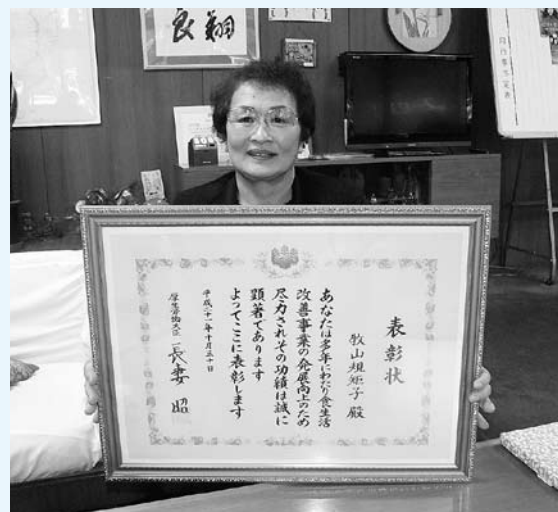 表彰状
牧山規矩子 殿
あなたは多年にわたり食生活
改善事業の発展向上のため
尽力されその功績は誠に
顕著であります
よってここに表彰します
平成二十一年十月三十日
厚生労働大臣 長妻 昭
行事予定表